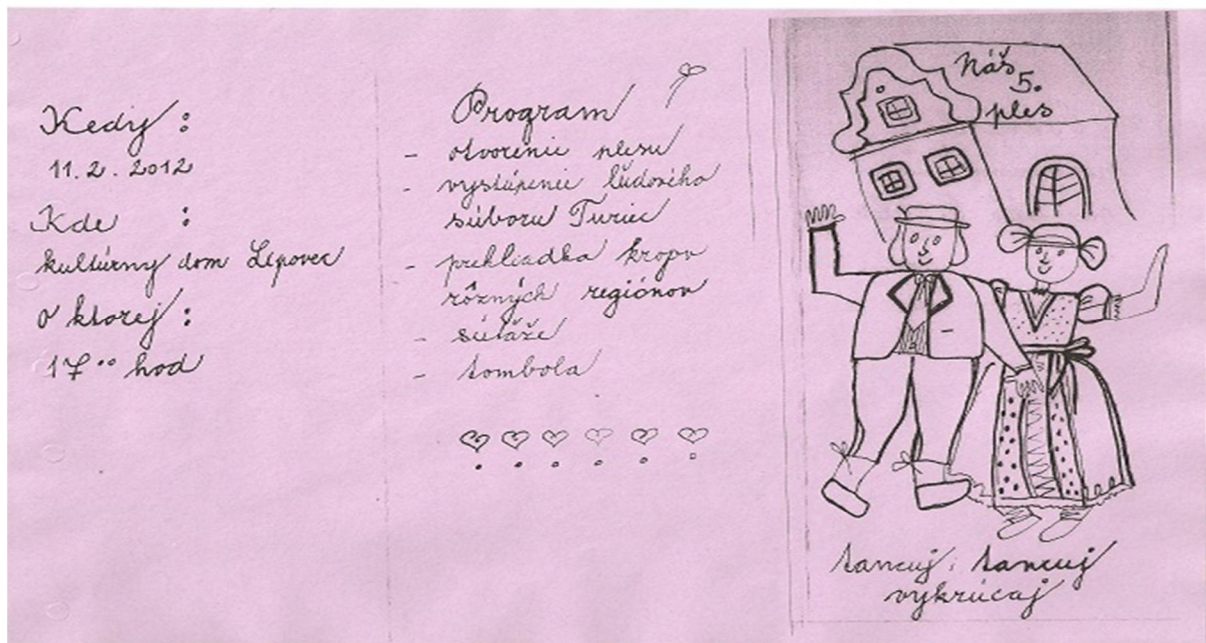 Kedy :
11.2.2012
Kde :
kultúrny dom Lipovec
o ktorej :
17°° hod
Program
- otvorenie plesu
- vystúpenie ľudového
súboru Turiec
- prehliadka krojov
rôznych regiónov
- súťaže
- tombola
Náš
5.
ples
tancuj, tancuj
vykrúcaj